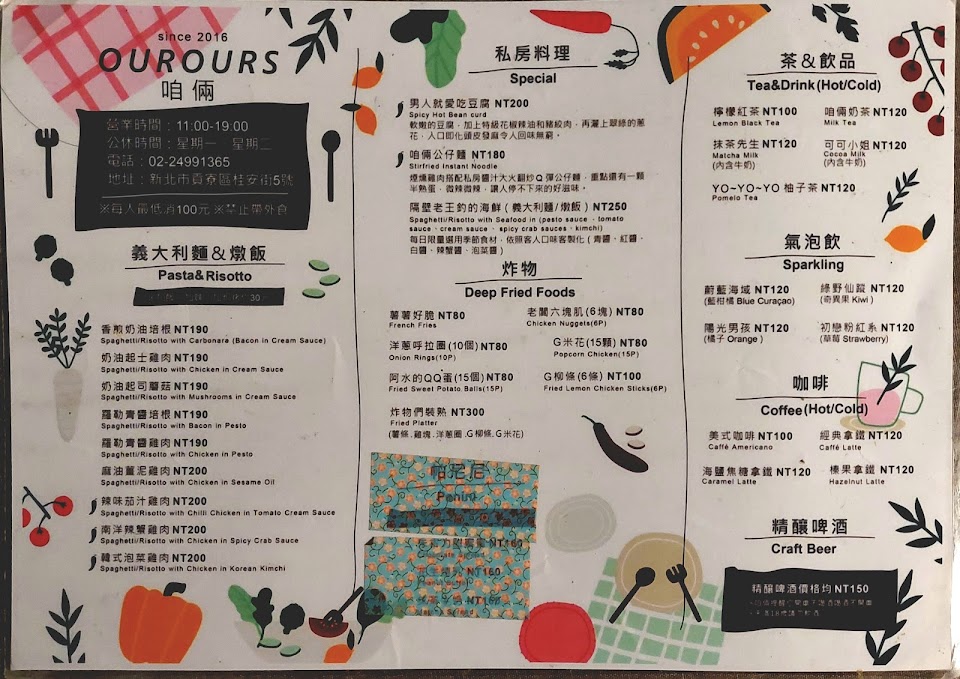 since 2016
OUROURS
咱倆
營業時間：11:00-19:00
公休時間：星期一 星期二
電話：02-24991365
地址：新北市貢寮區桂安街5號
※每人最低消100元 ※禁止帶外食
義大利麵&燉飯
Pasta&Risotto
30
香煎奶油培根 NT190
Spaghetti/Risotto with Carbonara (Bacon in Cream Sauce)
奶油起士雞肉 NT190
Spaghetti/Risotto with Chicken in Cream Sauce
奶油起司蘑菇 NT190
Spaghetti/Risotto with Mushrooms in Cream Sauce
羅勒青醬培根 NT190
Spaghetti/Risotto with Bacon in Pesto
羅勒青醬雞肉 NT190
Spaghetti/Risotto with Chicken in Pesto
麻油薑泥雞肉 NT200
Spaghetti/Risotto with Chicken in Sesame Oil
辣味茄汁雞肉 NT200
Spaghetti/Risotto with Chilli Chicken in Tomato Cream Sauce
南洋辣蟹雞肉 NT200
Spaghetti/Risotto with Chicken in Spicy Crab Sauce
韓式泡菜雞肉 NT200
Spaghetti/Risotto with Chicken in Korean Kimchi
私房料理
Special
男人就愛吃豆腐 NT200
Spicy Hot Bean curd
軟嫩的豆腐，加上特級花椒辣油和豬絞肉，再灑上翠綠的蔥
花，入口即化頭皮發麻令人回味無窮。
咱倆公仔麵 NT180
Stirfried Instant Noodle
煙燻雞肉搭配私房醬汁大火翻炒Q彈公仔麵，重點還有一顆
半熟蛋，微辣微辣，讓人停不下來的好滋味。
隔壁老王釣的海鮮（義大利麵/燉飯）NT250
Spaghetti/Risotto with Seafood in (pesto sauce、tomato
sauce、cream sauce、 spicy crab sauces、kimchi)
每日限量選用季節食材，依照客人口味客製化（青醬、紅醬、
白醬、辣蟹醬、泡菜醬）
炸物
Deep Fried Foods
薯薯好脆 NT80
French Fries
老闆六塊肌(6塊) NT80
Chicken Nuggets(6P)
洋蔥呼拉圈(10個) NT80
Onion Rings(10P)
G米花(15顆) NT80
Popcorn Chicken(15P)
阿水的QQ蛋(15個) NT80
Fried Sweet Potato Balls(15P)
G柳條(6條) NT100
Fried Lemon Chicken Sticks(6P)
炸物們裝熟 NT300
Fried Platter
(薯條.雞塊.洋蔥圈.G柳條.G米花)
帕尼尼
Panini
NT160
NT160
茶&飲品
Tea&Drink(Hot/Cold)
檸檬紅茶 NT100
Lemon Black Tea
咱倆奶茶 NT120
Milk Tea
抹茶先生 NT120
Matcha Milk
(內含牛奶)
可可小姐 NT120
Cocoa Milk
(內含牛奶)
YO~YO~YO 柚子茶 NT120
Pomelo Tea
氣泡飲
Sparkling
蔚藍海域 NT120
(藍柑橘 Blue Curaçao)
綠野仙蹤 NT120
(奇異果 Kiwi )
陽光男孩 NT120
(橘子 Orange )
初戀粉紅系 NT120
(草莓 Strawberry)
咖啡
Coffee(Hot/Cold)
美式咖啡 NT100
Caffè Americano
經典拿鐵 NT120
Caffè Latte
海鹽焦糖拿鐵 NT120
Caramel Latte
榛果拿鐵 NT120
Hazelnut Latte
精釀啤酒
Craft Beer
精釀啤酒價格均 NT150